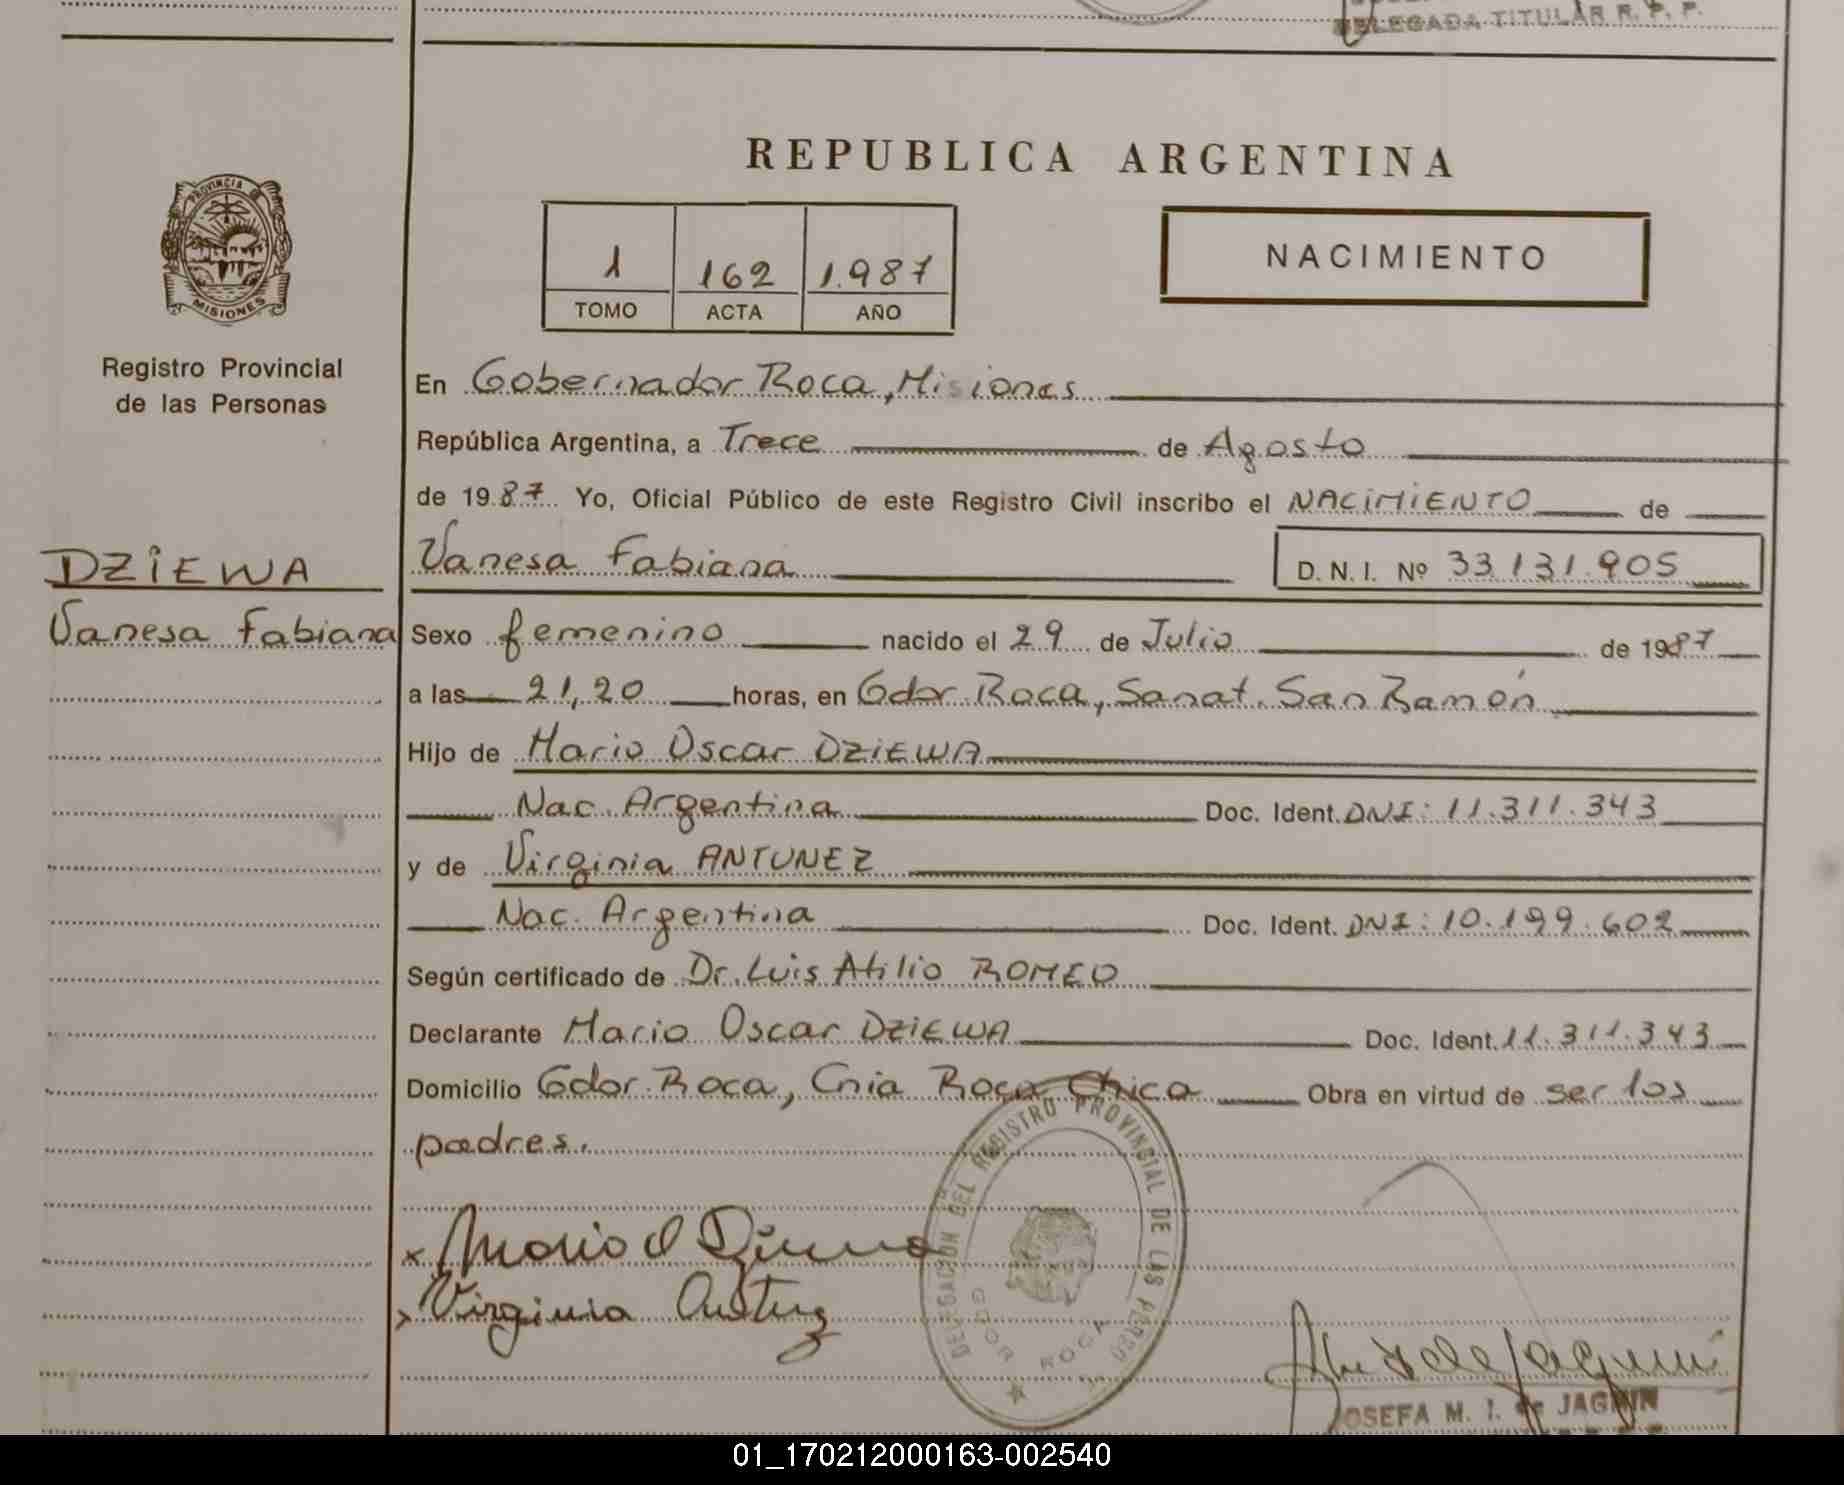 DELEGADA TITULAR R. P. P.
REPUBLICA ARGENTINA
PROVINCIA DE
MISIONES
Registro Provincial
de las Personas
1 162 1.987
TOMO ACTA AÑO
NACIMIENTO
En Gobernador Roca, Misiones
República Argentina, a Trece de Agosto
de 1987 Yo, Oficial Público de este Registro Civil inscribo el NACIMIENTO de
DZIEWA
Vanesa Fabiana
Vanesa Fabiana D. N. I. Nº 33.131.905
Sexo femenino nacido el 29 de Julio de 1987
a las 21,20 horas, en Gdor. Roca, Sanat. San Ramón
Hijo de Mario Oscar DZIEWA
Nac. Argentina Doc. Ident. DNI: 11.311.343
y de Virginia ANTUNEZ
Nac. Argentina Doc. Ident. DNI: 10.199.602
Según certificado de Dr. Luis Atilio ROMEO
Declarante Mario Oscar DZIEWA Doc. Ident. 11.311.343
Domicilio Gdor. Roca, Cnia Roca Chica Obra en virtud de ser los
padres.
DELEGACIÓN DEL REGISTRO PROVINCIAL DE LAS PERSO
GDOR ROCA
x Mario O
x Virginia
JOSEFA M. I. de JAGUIN
01_170212000163-002540